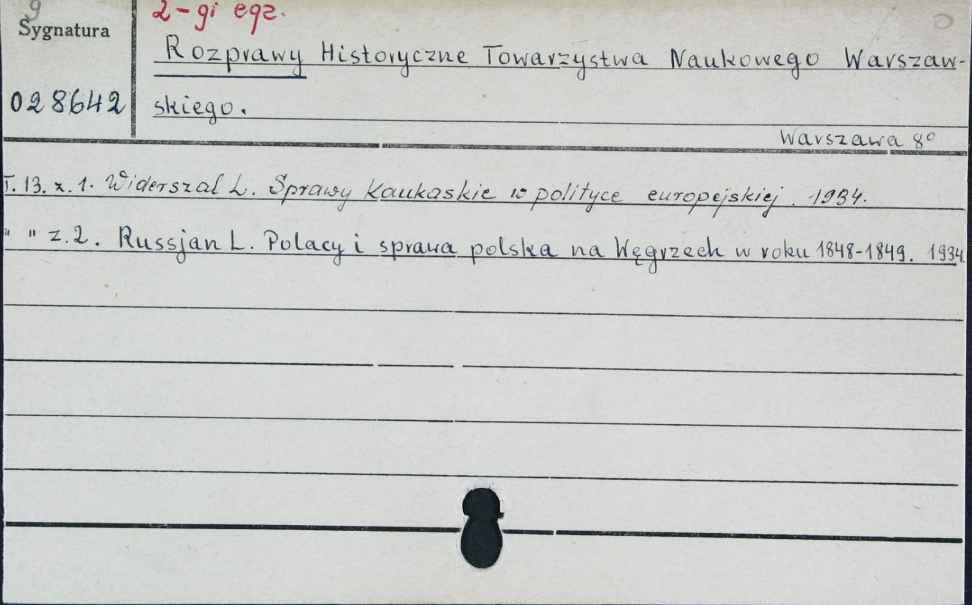 9
2-gi egz.
Sygnatura
Rozprawy Historyczne Towarzystwa Naukowego Warszaw-
028642
skiego.
Warszawa 8°
T. 13. z. 1. Widerszal L. Sprawy Kaukaskie w polityce europejskiej. 1934.
" " z. 2. Russjan L. Polacy i sprawa polska na Węgrzech w roku 1848-1849. 1934